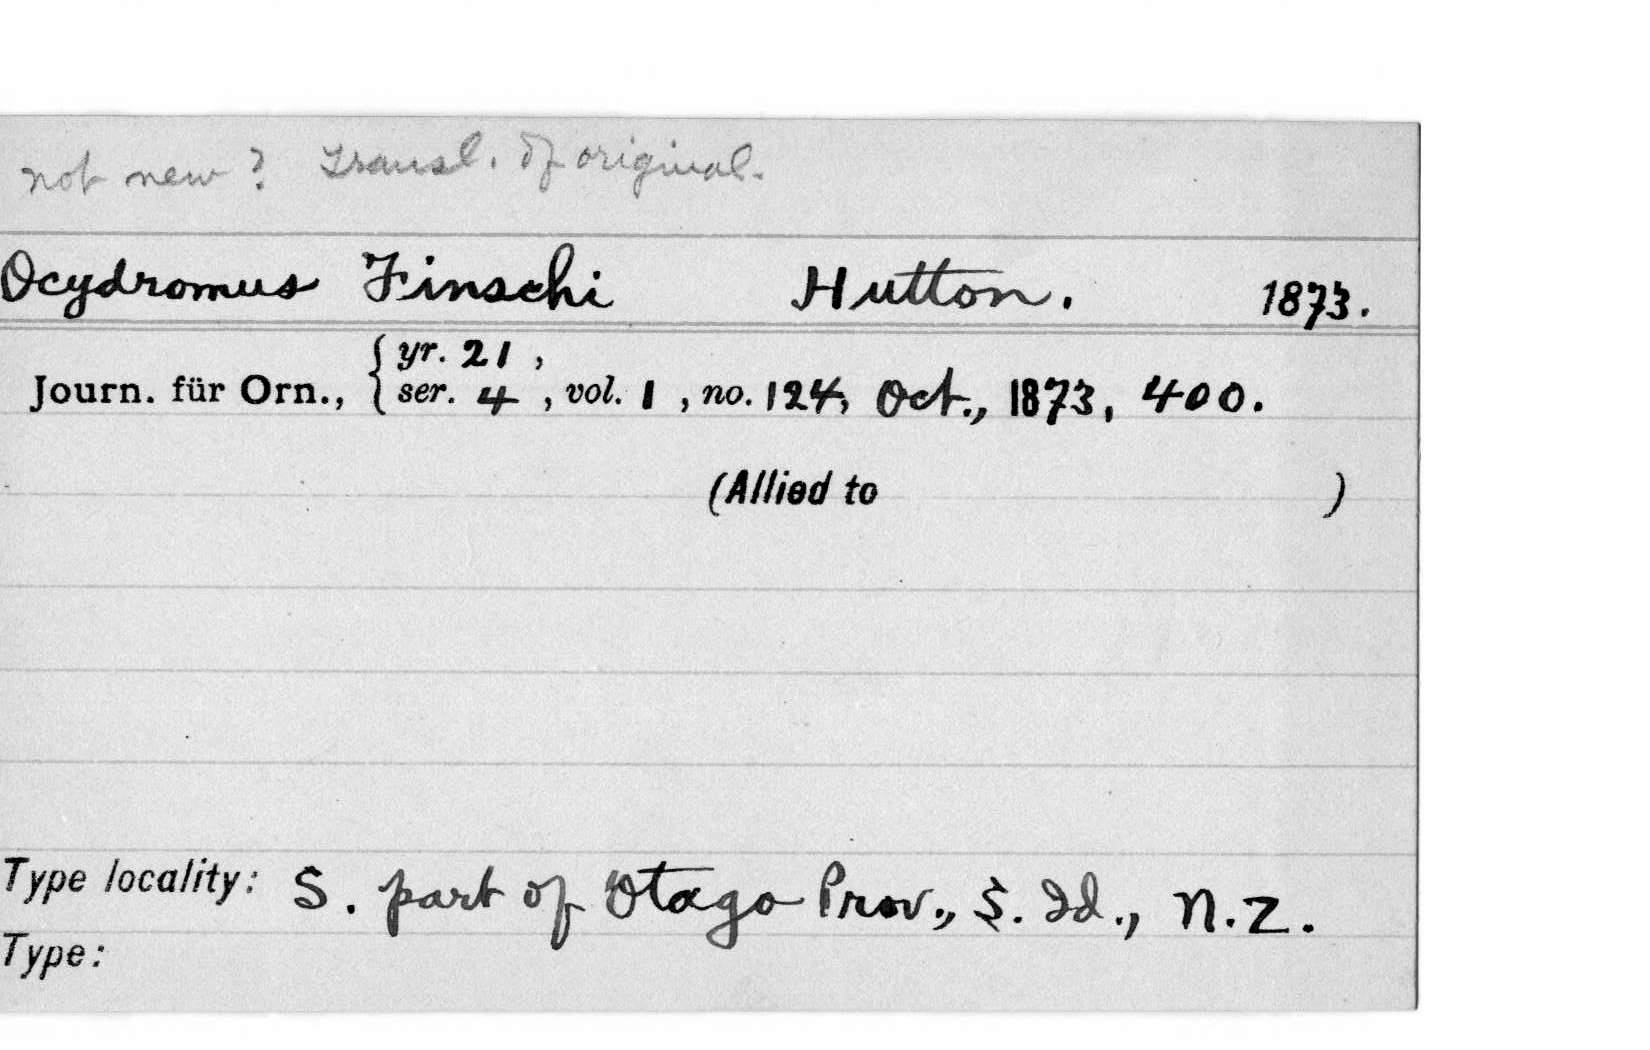 not new? Transl. of original.
Ocydromus Finschi Hutton. 1873.
Journ. für Orn., { yr. 21 ,
ser. 4 , vol. 1 , no. 124, Oct., 1873, 400.
(Allied to )
Type locality: S. part of Otago Prov., S. Id., N.Z.
Type: